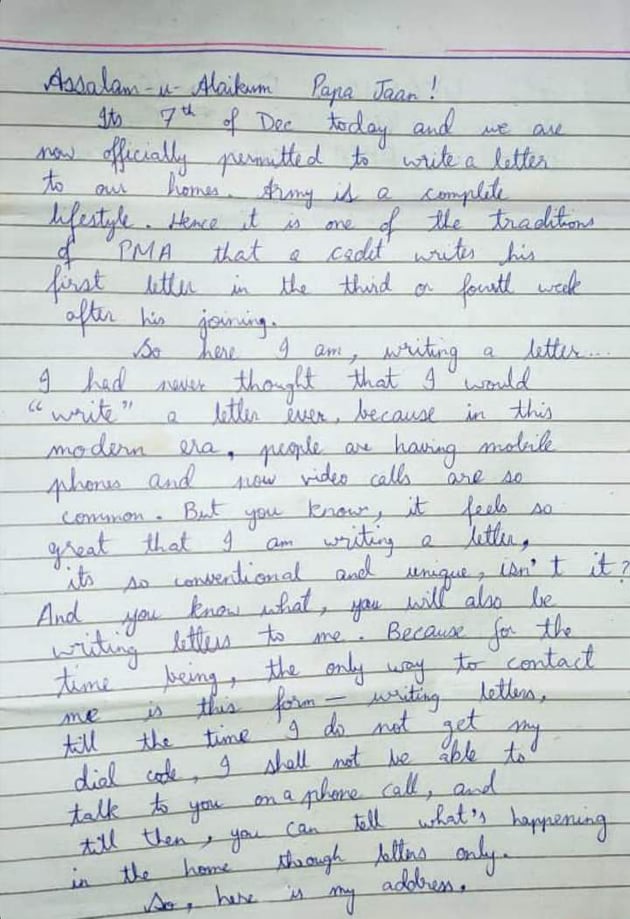 Assalam-u-Alaikum Papa Jaan!
Its 7th of Dec today and we are
now officially permitted to write a letter
to our homes. Army is a complete
lifestyle. Hence it is one of the traditions
of PMA that a cadet writes his
first letter in the third or fourth week
after his joining.
So here I am, writing a letter...
I had never thought that I would
"write" a letter ever, because in this
modern era, people are having mobile
phones and now video calls are so
common. But you know, it feels so
great that I am writing a letter,
its so conventional and unique, isn't it?
And you know what, you will also be
writing letters to me. Because for the
time being, the only way to contact
me is this form – writing letters,
till the time I do not get my
dial code, I shall not be able to
talk to you on a phone call, and
till then, you can tell what's happening
in the home through letters only.
So, here is my address.